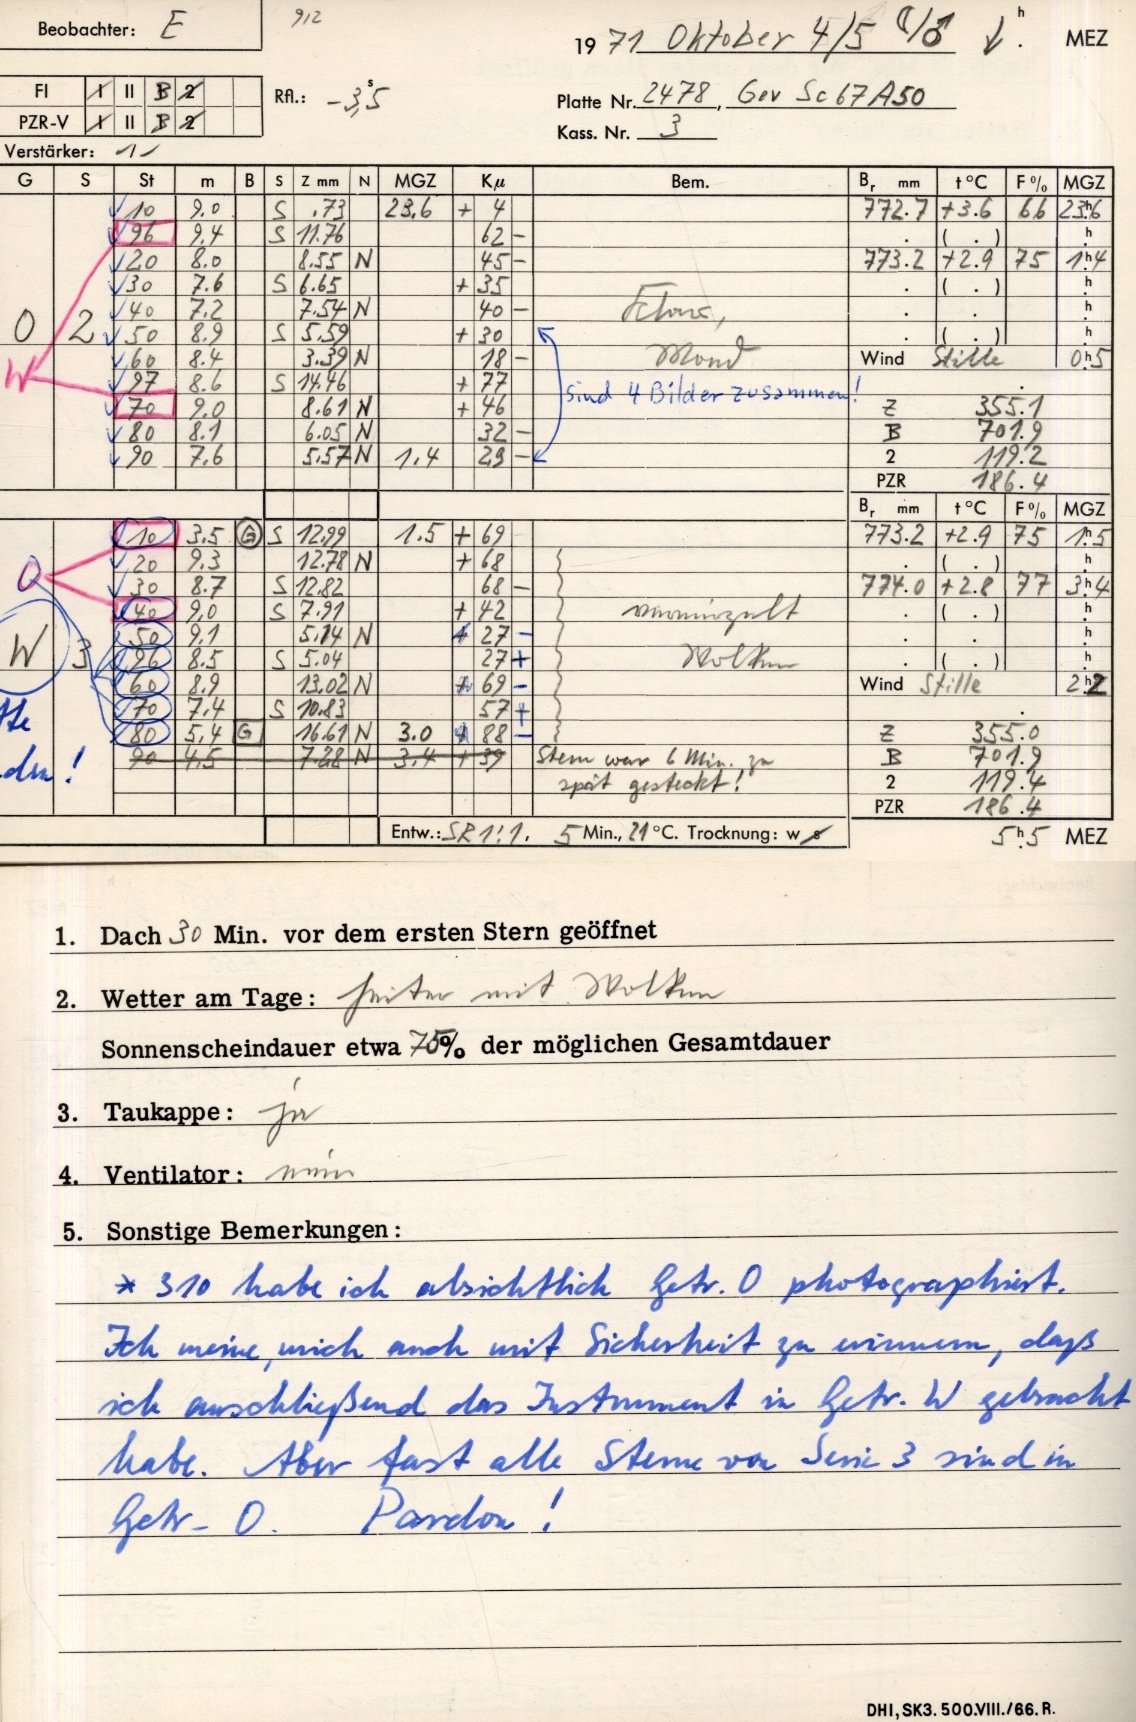 Beobachter: E
912
19 71 Oktober 4/5 ☾/♂ h MEZ
FI I II B 2
PZR-V I II B 2
Rfl.: -3,5 s
Platte Nr. 2478, Gev Sc 67 A 50
Kass. Nr. 3
Verstärker: 1
G S St m B S Z mm N MGZ Kμ Bem. Br mm t °C F % MGZ
10 9.0 S .73 23.6 + 4 772.7 +3.6 66 23h6
96 9.4 S 11.76 62 - . ( . ) h
20 8.0 8.55 N 45 - 773.2 +2.9 75 1h4
30 7.6 S 6.65 + 35 . ( . ) h
40 7.2 7.54 N 40 - . . h
O 2 50 8.9 S 5.59 + 30 . ( . ) h
60 8.4 3.39 N 18 - Mond Wind Stille 0h5
W 97 8.6 S 14.46 + 77 .
sind 4 Bilder zusammen!
70 9.0 8.61 N + 46 Z 355.1
80 8.1 6.05 N 32 - B 701.9
90 7.6 5.57 N 1.4 29 - 2 119.2
PZR 186.4
Br mm t °C F % MGZ
10 3.5 G S 12.99 1.5 + 69 773.2 +2.9 75 1h5
20 9.3 12.78 N + 68 . ( . ) h
O 30 8.7 S 12.82 68 - 774.0 +2.8 77 3h4
40 9.0 S 7.91 + 42 vereinzelt . ( . ) h
50 9.1 5.14 N + 27 - . . h
W 3 96 8.5 S 5.04 27 + Wolken . ( . ) h
60 8.9 13.02 N + 69 - Wind Stille 2h2
70 7.4 S 10.83 57 + .
80 5.4 G 16.61 N 3.0 + 88 - Z 355.0
90 4.5 7.28 N 3.4 + 39 Stern war 6 Min. zu B 701.9
spät gesteckt! 2 119.4
PZR 186.4
Entw.: SR 1:1, 5 Min., 21 °C. Trocknung: w s 5h5 MEZ
1. Dach 30 Min. vor dem ersten Stern geöffnet
2. Wetter am Tage: heiter mit Wolken
Sonnenscheindauer etwa 75% der möglichen Gesamtdauer
3. Taukappe: ja
4. Ventilator: nein
5. Sonstige Bemerkungen:
* 310 habe ich absichtlich Getr. O photographiert.
Ich meine, mich auch mit Sicherheit zu erinnern, daß
ich anschließend das Instrument in Getr. W gebracht
habe. Aber fast alle Sterne von Serie 3 sind in
Getr. O. Pardon!
DHI, SK3. 500.VIII./66. R.